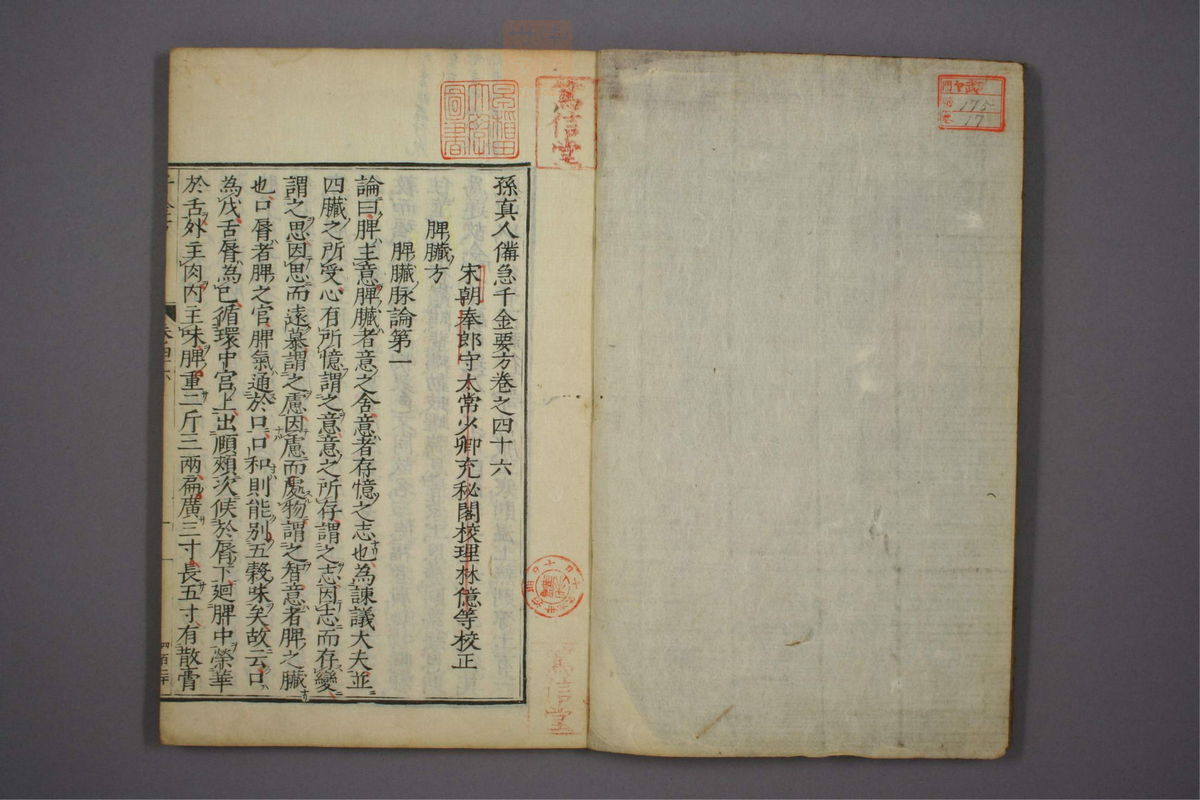 175
17
篤信堂
早稲田大学図書
篤信堂
孫真人備急千金要方卷之四十六
宋朝奉郎守太常少卿充秘閣校理林億等校正
脾臟方
脾臟脉論第一
論曰脾主意脾臟者意之舍意者存憶之志也為諫議大夫並
四臟之所受心有所憶謂之意意之所存謂之志因志而存變
謂之思因思而遠慕謂之慮因慮而處物謂之智意者脾之臟
也口脣者脾之官脾氣通於口口和則能别五穀味矣故云口
為戊舌脣為己循環中宮上出頤頰次候於脣下廻脾中榮華
於舌外主肉內主味脾重二斤三兩扁廣三寸長五寸有散膏